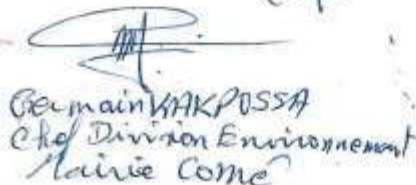 Germain KAKPOSSA
Chef Division Environnement
Mairie Comé